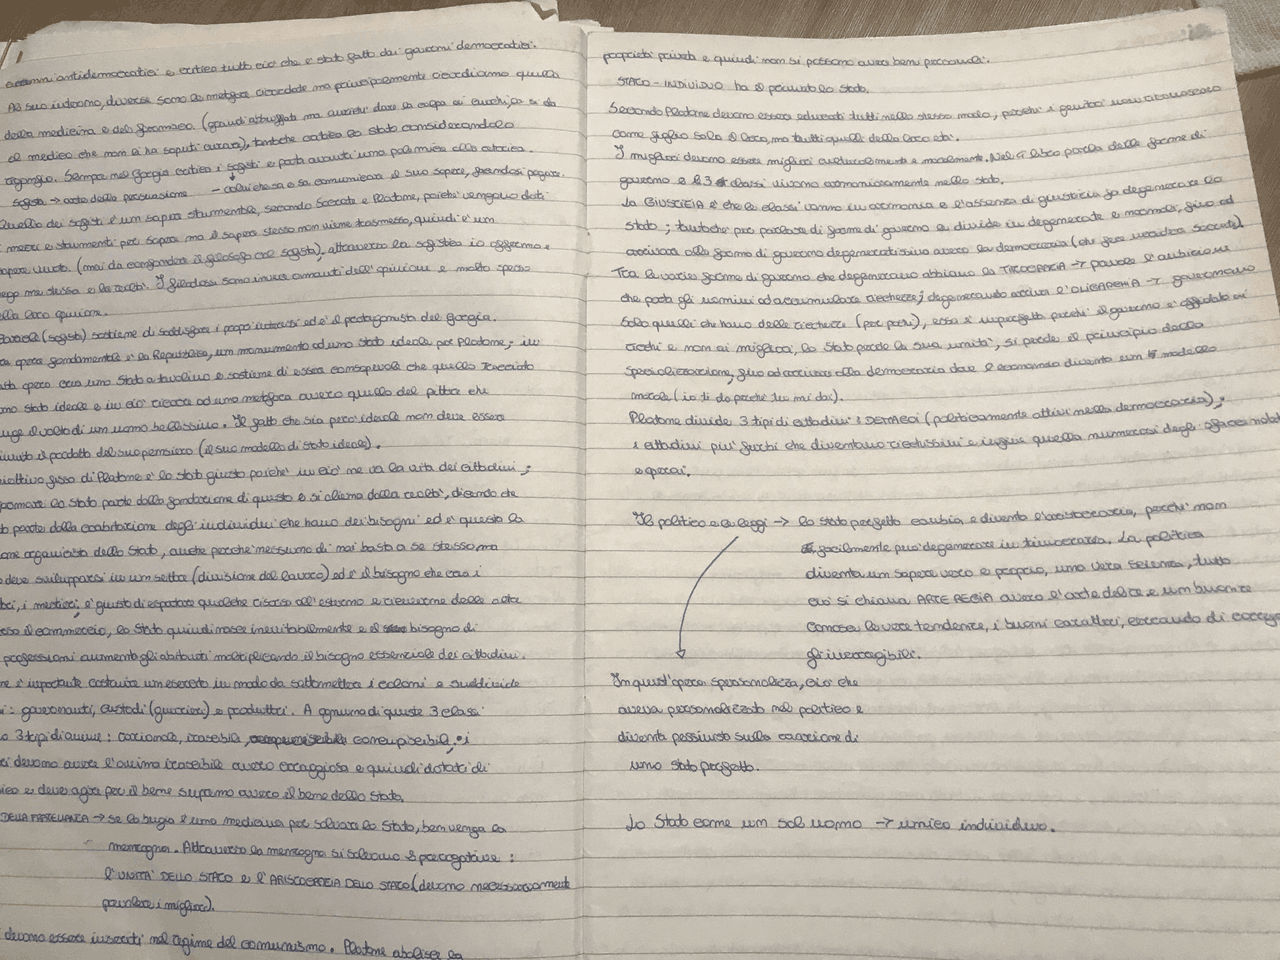 antidemocratici e critica tutto ciò che è stato fatto dai governi democratici.
Al suo interno, diverse sono le metafore ricordate ma principalmente ricordiamo quella
della medicina e del farmaco (grandi abbuffate ma anziché dare la colpa ai cuochi, la si dà
al medico che non li ha saputi curare), tant'è che critica lo stato considerandolo
Sempre nel Gorgia critica i sofisti e porta avanti una polemica alla retorica.
sofista → arte della persuasione → colui che sa e sa comunicare il suo sapere, facendosi pagare.
Quello dei sofisti è un sapere strumentale, secondo Socrate e Platone, poiché vengono dati
mezzi e strumenti per sapere ma il sapere stesso non viene trasmesso, quindi è un
sapere vuoto. (mai da confondere il filosofo col sofista), attraverso la sofistica io affermo e
nego me stessa e la realtà. I filodossi sono invece amanti dell'opinione e molto spesso
della loro opinione.
(sofista) sostiene di soddisfare i propri interessi ed è il protagonista del Gorgia.
opera fondamentale è la Repubblica, un monumento ad uno stato ideale per Platone; in
opera crea uno Stato a tavolino e sostiene di essere consapevole che quello tracciato
uno stato ideale e in ciò ricorre ad una metafora ovvero quella del pittore che
il volto di un uomo bellissimo. Il fatto che sia però ideale non deve essere
il prodotto del suo pensiero (il suo modello di stato ideale).
obiettivo fisso di Platone è lo stato giusto poiché in ciò ne va la vita dei cittadini;
formare lo stato parte dalla fondazione di questo e si aliena dalla realtà, dicendo che
parte dalla coabitazione degli individui che hanno dei bisogni ed è questa la
organicista dello Stato, anche perché nessuno di noi basta a se stesso ma
deve svilupparsi in un settore (divisione del lavoro) ed è il bisogno che crea i
i mestieri; è giusto di esportare qualche risorsa all'estero e riceverne delle altre
il commercio, lo Stato quindi nasce inevitabilmente e il bisogno di
professioni aumenta gli abitanti moltiplicando il bisogno essenziale dei cittadini.
è importante costruire un esercito in modo da sottomettere i coloni e suddivide
: governanti, custodi (guerrieri) e produttori. A ognuno di queste 3 classi
3 tipi di anime: razionale, irascibile, concupiscibile; i
devono avere l'anima irascibile ovvero coraggiosa e quindi dotati di
e deve agire per il bene supremo ovvero il bene dello Stato.
DELLA FRATELLANZA → se la bugia è una medicina per salvare lo Stato, ben venga la
menzogna. Attraverso la menzogna si salvano 2 prerogative:
L'UNITÀ DELLO STATO E L'ARISTOCRAZIA DELLO STATO (devono necessariamente
prevalere i migliori).
devono essere inseriti nel regime del comunismo. Platone abolisce la
proprietà privata e quindi non si possono avere beni personali.
STATO - INDIVIDUO ha il primato lo stato.
Secondo Platone devono essere educati tutti nello stesso modo, perché i genitori non riconoscono
come figlio solo il loro, ma tutti quelli della loro età.
I migliori devono essere migliori culturalmente e moralmente. Nel libro parla delle forme di
governo e le 3 classi vivono armonicamente nello stato.
La GIUSTIZIA è che le classi vanno in armonia e l'assenza di giustizia fa degenerare lo
stato; tant'è che per parlare di forme di governo le divide in degenerate e normali, fino ad
arrivare alla forma di governo degeneratissima ovvero la democrazia (che fece uccidere Socrate)
Tra le varie forme di governo che degenerano abbiamo la TIMOCRAZIA → prevale l'ambizione
che porta gli uomini ad accumulare ricchezze; degenerando arriva l'OLIGARCHIA → governano
solo quelli che hanno delle ricchezze (per pochi), essa è imperfetta perché il governo è affidato ai
ricchi e non ai migliori, lo Stato perde la sua unità, si perde il principio della
specializzazione, fino ad arrivare alla democrazia dove l'economia diventa un modello
morale (io ti do perché tu mi dai).
Platone divide 3 tipi di cittadini: DEMAGOGI (politicamente attivi nella democrazia);
i cittadini più furbi che diventano ricchissimi e infine quella numerosa degli
e operai.
Il politico e le leggi → lo stato perfetto cambia e diventa l'aristocrazia, perché non
facilmente può degenerare in timocrazia. La politica
diventa un sapere vero e proprio, una vera scienza, tutto
ciò si chiama ARTE REGIA ovvero l'arte del re e un buon re
conosce le vere tendenze, i buoni caratteri, cercando di correggere
gli incorreggibili.
In quest'opera spersonalizza, ciò che
aveva personalizzato nel politico e
diventa pessimista sulla creazione di
uno stato perfetto.
Lo Stato come un sol uomo → unico individuo.